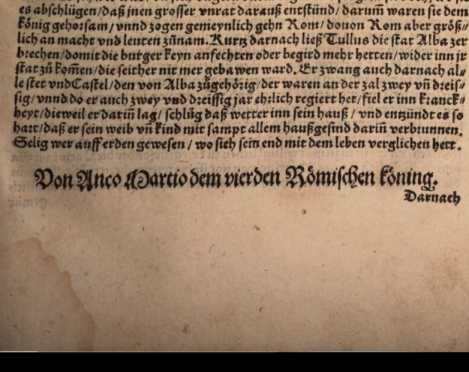 es abschlügen/daß jnen grosser vnrat darauß entstünd/darum̃ waren sie dem
könig gehorsam/vnnd zogen gemeynlich gehn Rom/douon Rom aber größ⸗
lich an macht vnd leuten zůnam. Kurtz darnach ließ Tullus die stat Alba zer
brechen/domit die burger keyn anfechten oder begird mehr hetten/wider inn jr
stat zů kom̃en/die seither nit mer gebawen ward. Er zwang auch darnach al⸗
le stet vnd Castel/den von Alba zůgehörig/der waren an der zal zwey vñ dreis⸗
sig/vnnd do er auch zwey vnd dreissig jar ehrlich regiert het/fiel er inn kranck⸗
heyt/dieweil er dariñ lag/schlůg daß wetter inn sein hauß/vnd entzündt es so
hart/daß er sein weib vñ kind mit sampt allem haußgesind dariñ verbrunnen.
Selig wer auff erden gewesen/wo sich sein end mit dem leben verglichen hett.
Von Anco Martio dem vierden Römischen köning.
Darnach